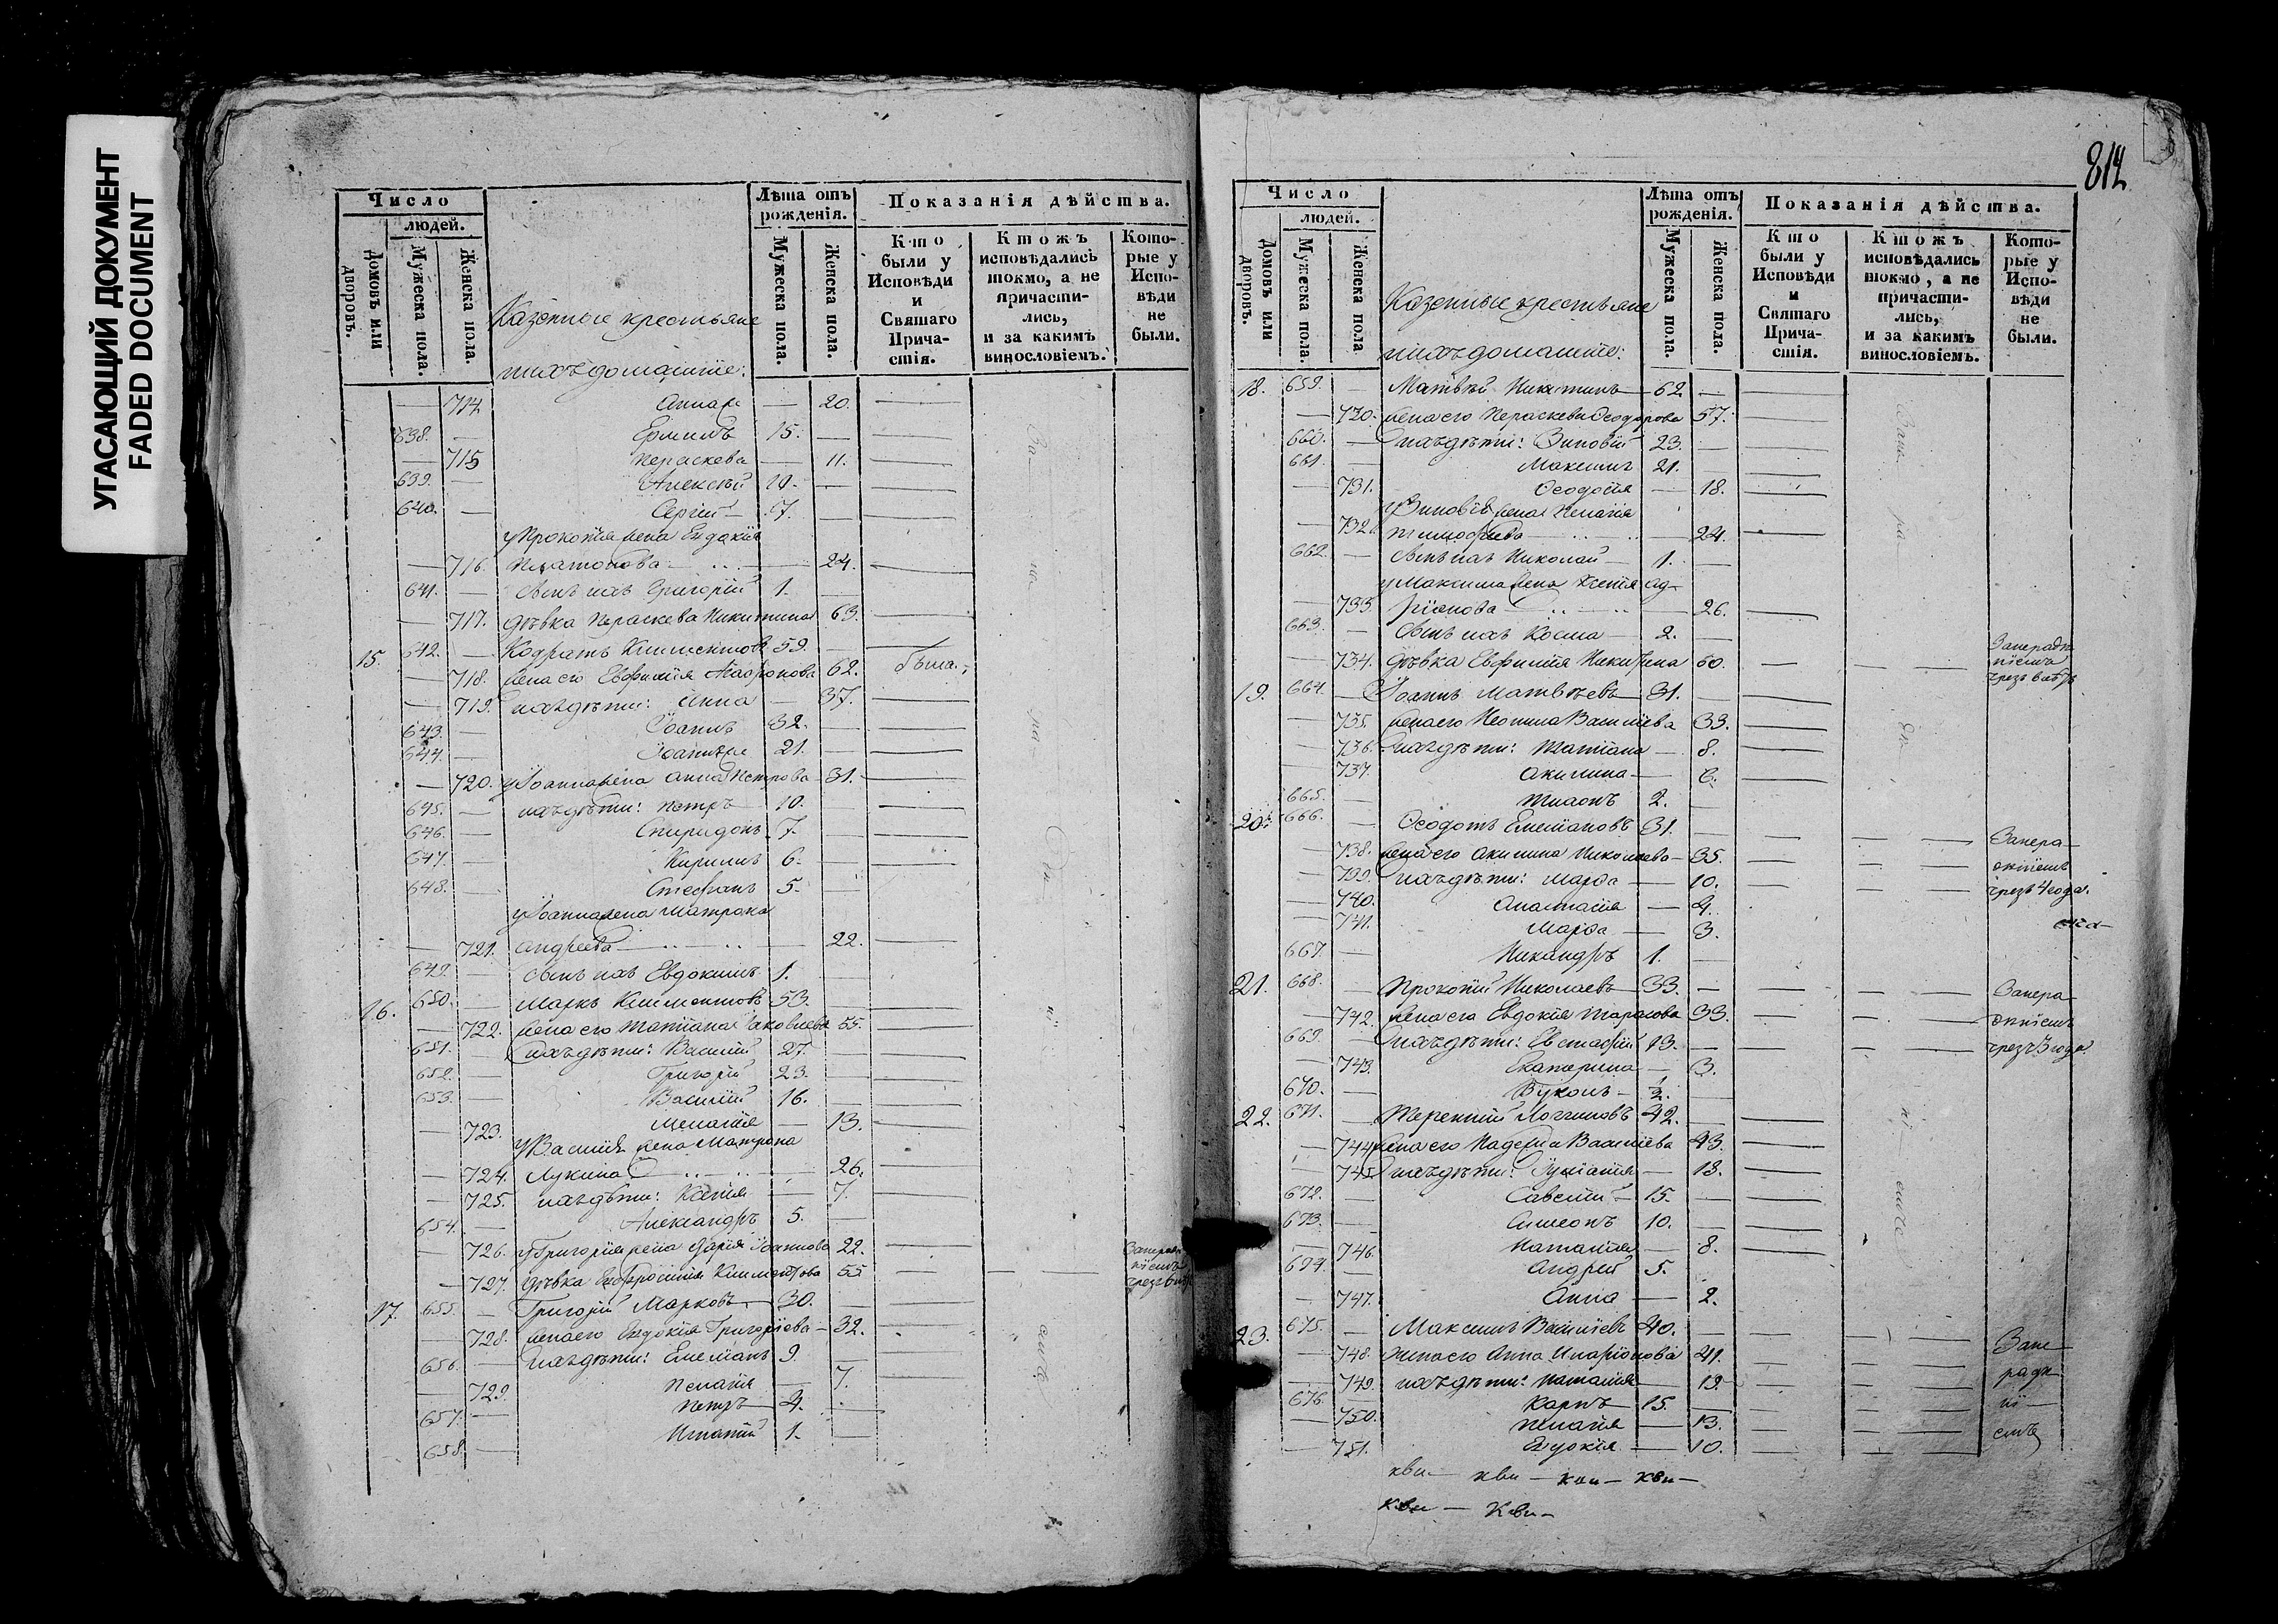 УГАСАЮЩИЙ ДОКУМЕНТ
FADED DOCUMENT
Число
людей.
Домовъ или дворовъ.
Мужеска пола.
Женска пола.
Казенные крестьяне
и ихъ домашніе:
Лѣта отъ рожденія.
Мужеска пола.
Женска пола.
Показанія дѣйства.
Кто были у Исповѣди и Святаго Причастія.
Ктожъ исповѣдались токмо, а не причастились, и за какимъ винословіемъ.
Которые у Исповѣди не были.
— 714 — 20.
638. — Ермилъ 15. —
— 715 Пераскева — 11.
639. — Алексѣй 10. —
640. — Сергій 7. —
у Прокопія жена Евдокія
— 716. Платонова — 24.
641. — сынъ ихъ Григорій 1. —
— 717. дѣвка Пераскева Никитина 63.
15. 642. — Кодратъ Климентовъ 59. —
— 718. жена его Евфимія 62. была
— 719. ихъ дѣти: Анна — 37.
643. — Іоаннъ 32. —
644. — Іоанъ же 21. —
— 720. у Іоанна жена Анна Петрова 31.
645. — ихъ дѣти: Петръ 10. —
646. — Спиридонъ 7. —
647. — Кирилъ 6. —
648. — Стефанъ 5. —
у Іоанна жена Матрона
— 721. Андреева — 22.
649. — сынъ ихъ Евдокимъ 1. —
16. 650. — Маркъ Климентовъ 53. —
— 722. жена его Татіана Іаковлева 55.
651. — ихъ дѣти: Василій 27. —
652. — Григорій 23. —
653. — Василій 16. —
— 723. Меланія — 13.
у Василія жена Матрона
— 724. Лукина — 26.
— 725. ихъ дѣти: Ксенія — 7.
654. — Александръ 5. —
— 726. у Григорія жена Дарія Іоаннова 22.
— 727. дѣвка Евфросинія Климентова 55
17. 655. — Григорій Марковъ 30. —
— 728. жена его Евдокія Григоріева 32.
656. — ихъ дѣти: Емеліанъ 9. —
— 729. Пелагія — 7.
657. — Петръ 4. —
658. — Игнатій 1. —
814
Число
людей.
Домовъ или дворовъ.
Мужеска пола.
Женска пола
Казенные крестьяне
и ихъ домашніе:
Лѣта отъ рожденія.
Мужеска пола.
Женска пола.
Показанія дѣйства.
Кто были у Исповѣди и Святаго Причастія.
Ктожъ исповѣдались токмо, а не причастились, и за какимъ винословіемъ.
Которые у Исповѣди не были.
18. 659. — Матвѣй Никитинъ 62 —
— 730. жена его Пераскева Ѳеодорова 57.
660. — ихъ дѣти: Зиновій 23. —
661. — Максимъ 21. —
— 731. Ѳеодосія — 18.
у Зиновія жена Пелагія
— 732. Тимофѣева — 24.
662. — сынъ ихъ Николай 1. —
у Максима жена Ксенія Ад-
— 733. ріанова — 26.
663. — сынъ ихъ Косма 2. —
— 734. дѣвка Евфимія Никитина 60.
19. 664. — Іоаннъ Матвѣевъ 31. —
— 735. жена его Неонила Василіева 33.
— 736. ихъ дѣти: Татіана — 8.
— 737. Акилина — 6.
665. — 2. —
20. 666. — Ѳеодотъ Емеліановъ 31. — Занера-
— 738. жена его Акилина Николаева 35.
— 739. ихъ дѣти: Марѳа — 10. чрезъ 4 года.
— 740. Анастасія — 4.
— 741. Марѳа — 3.
667. — Никандръ 1. —
21. 668. — Прокопій Николаевъ 33. — Занера-
— 742. жена его Евдокія Тарасова 33.
669. — ихъ дѣти: Евстафій 13. — чрезъ 3 года
— 743. Екатерина — 3.
670. — Вуколъ ½. —
22. 671. — Терентій Логиновъ 42. —
— 744. жена его Надежда Василіева 43.
— 745. ихъ дѣти: Іуліанія — 18.
672. — Савелій 15. —
673. — Симеонъ 10. —
— 746. Наталія — 8.
674. — Андрей 5.
— 747. Анна — 2.
23. 675. — Максимъ Василіевъ 40. —
— 748. жена его Анна Иларіонова 41. Зане-
— 749. ихъ дѣти: Наталія — 19. ради-
676. — Карпъ 15. —
— 750. Пелагія — 13.
— 751. Евдокія — 10.
кви — кви — кви — кви —
кви — кви —